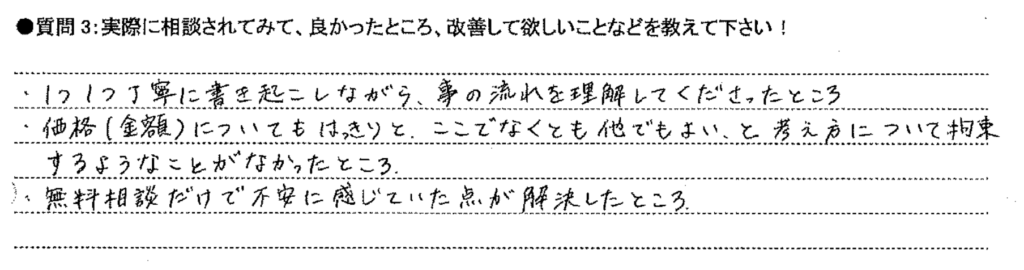 ●質問3:実際に相談されてみて、良かったところ、改善して欲しいことなどを教えて下さい!
・1つ1つ丁寧に書き起こしながら、事の流れを理解してくださったところ
・価格(金額)についてもはっきりと、ここでなくとも他でもよい、と考え方について拘束
するようなことがなかったところ.
・無料相談だけで不安に感じていた点が解決したところ.